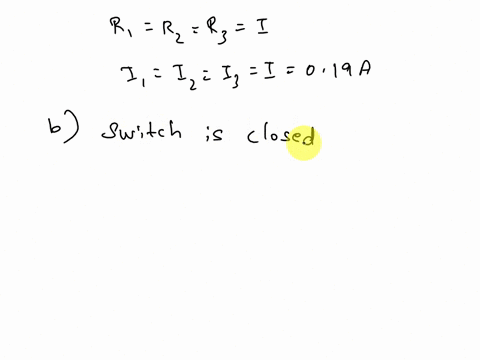 R₁ = R₂ = R₃ = I
I₁ = I₂ = I₃ = I = 0.19 A
b) Switch is closed